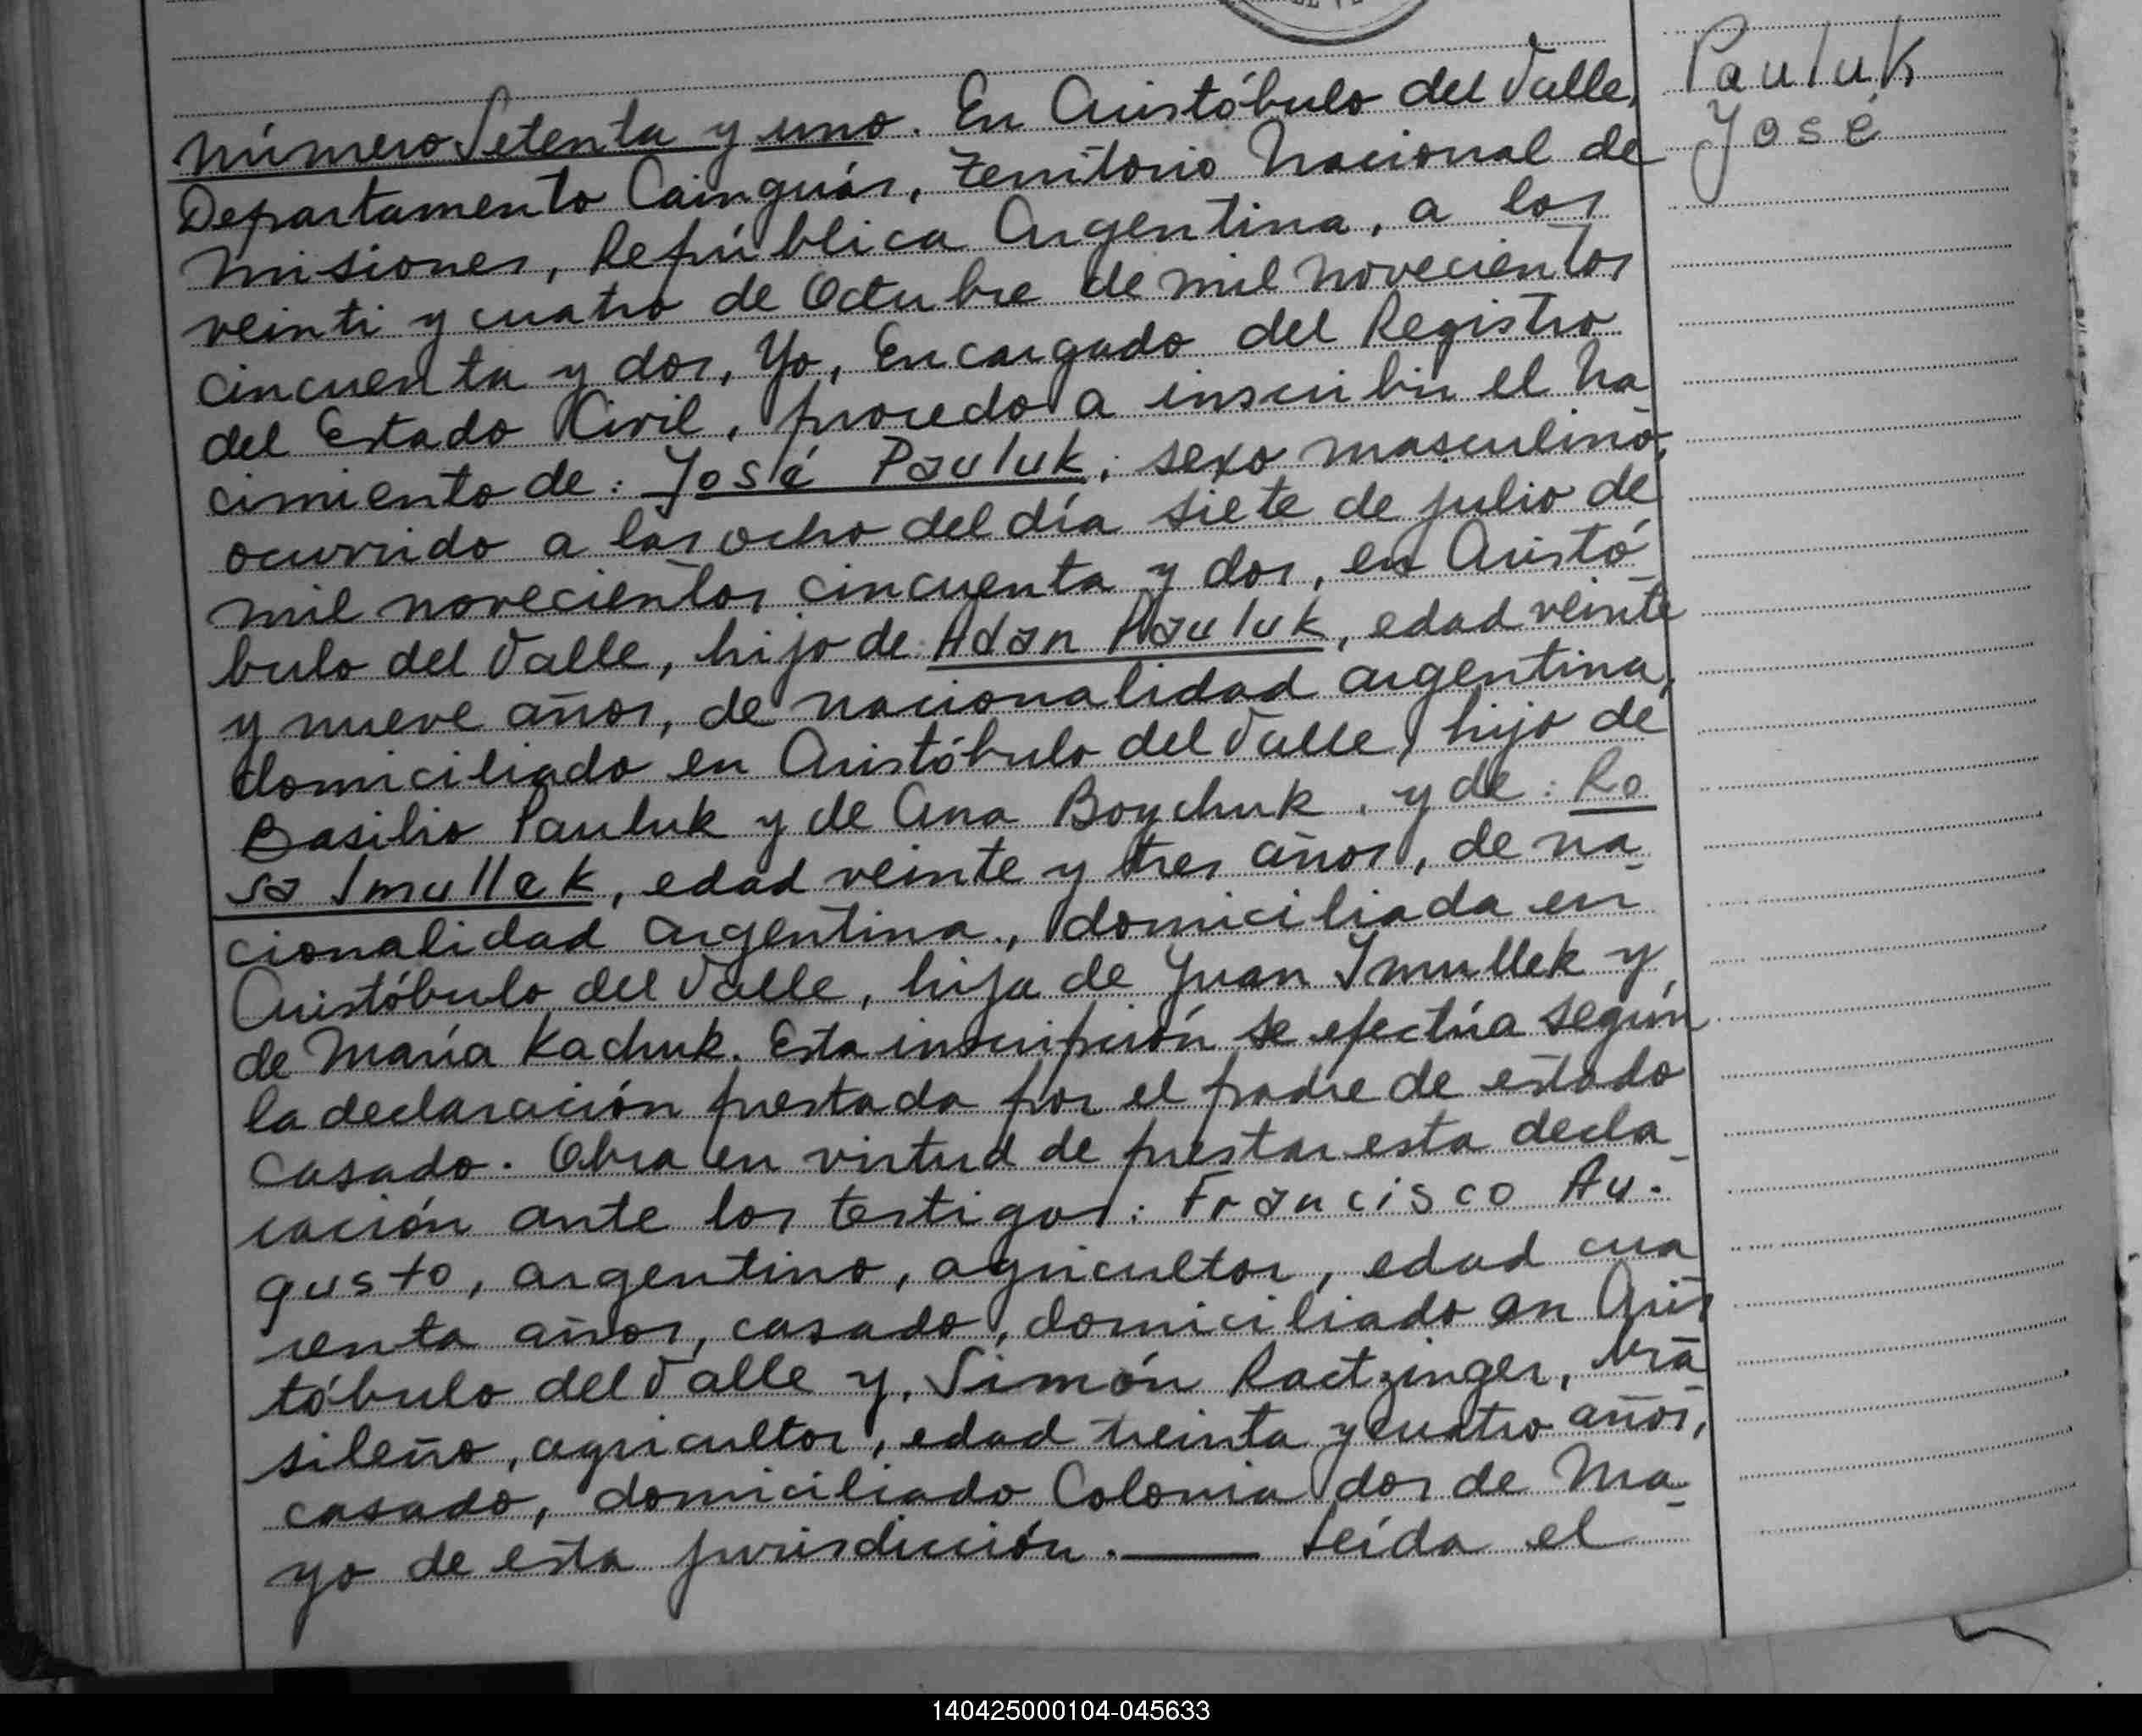 Pauluk
José
Número Setenta y uno. En Aristóbulo del Valle,
Departamento Cainguás, Territorio Nacional de
Misiones, República Argentina, a los
veinti y cuatro de Octubre de mil novecientos
cincuenta y dos, Yo, Encargado del Registro
del Estado Civil, procedo a inscribir el Na
cimiento de: José Pauluk, sexo masculino,
ocurrido a las ocho del día siete de julio de
mil novecientos cincuenta y dos, en Aristó
bulo del Valle, hijo de: Adan Pauluk, edad veinte
y nueve años, de nacionalidad argentina,
domiciliado en Aristóbulo del Valle, hijo de
Basilio Pauluk y de Ana Boychuk, y de: Ro
sa Smullek, edad veinte y tres años, de na
cionalidad argentina, domiciliada en
Aristóbulo del Valle, hija de Juan Smullek y
de María Kachuk. Esta inscripción se efectúa según
la declaración prestada por el padre de estado
casado. Obra en virtud de prestar esta decla
ración ante los testigos: Francisco Au-
gusto, argentino, agricultor, edad cua
renta años, casado, domiciliado en Aris
tóbulo del Valle y, Simón Ractzinger, bra
sileño, agricultor, edad treinta y cuatro años,
casado, domiciliado Colonia dos de Ma
yo de esta jurisdicción. — Leída el
140425000104-045633